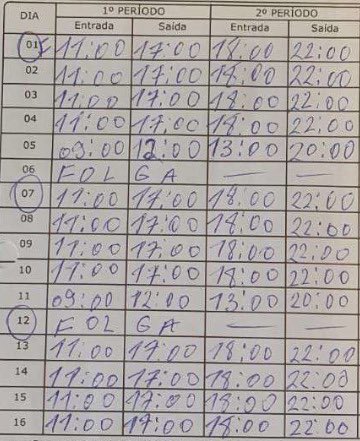 DIA 1º PERÍODO 2º PERÍODO
Entrada Saída Entrada Saída
01 F 11:00 17:00 18:00 22:00
02 11:00 17:00 18:00 22:00
03 11:00 17:00 18:00 22:00
04 11:00 17:00 18:00 22:00
05 09:00 12:00 13:00 20:00
06 FOLGA — —
07 11:00 17:00 18:00 22:00
08 11:00 17:00 18:00 22:00
09 11:00 17:00 18:00 22:00
10 11:00 17:00 18:00 22:00
11 09:00 12:00 13:00 20:00
12 FOLGA — —
13 11:00 17:00 18:00 22:00
14 11:00 17:00 18:00 22:00
15 11:00 17:00 18:00 22:00
16 11:00 17:00 18:00 22:00